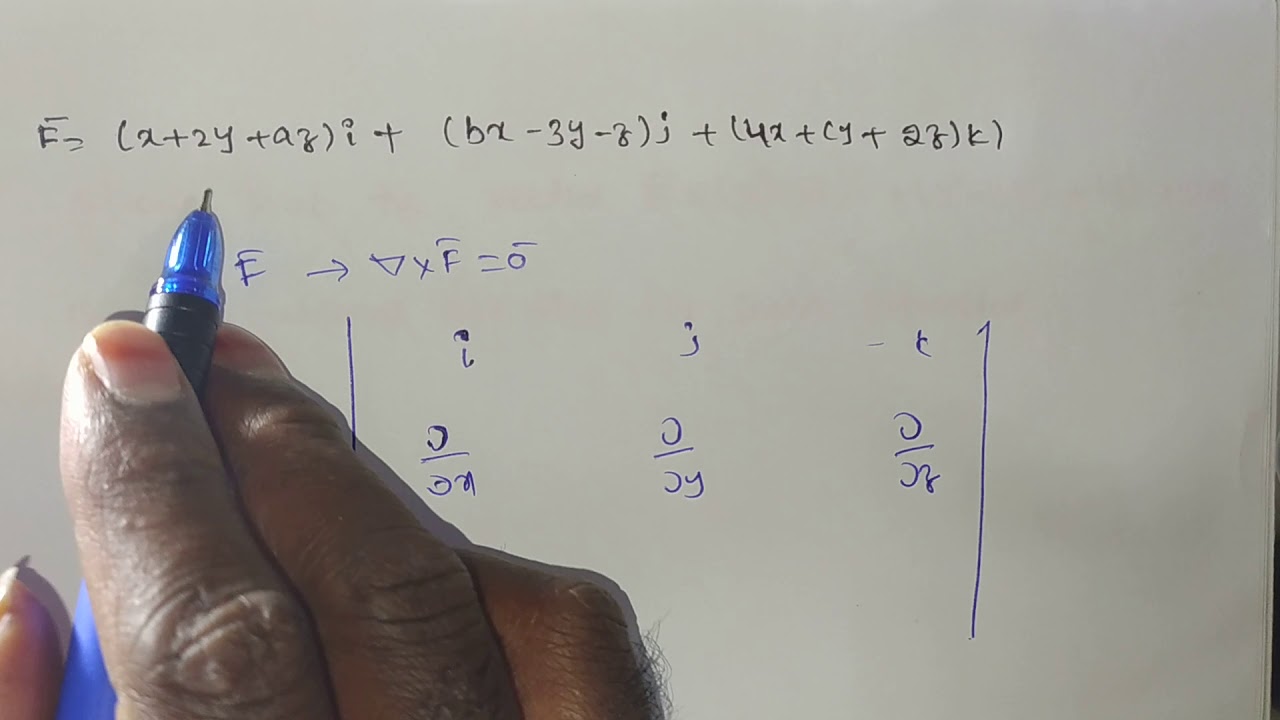 F̄= (x+2y+az)i + (bx-3y-z)j +(4x+cy+2z)k)
F̄ → ∇×F̄ =0̄
i j - k
∂/∂x ∂/∂y ∂/∂z